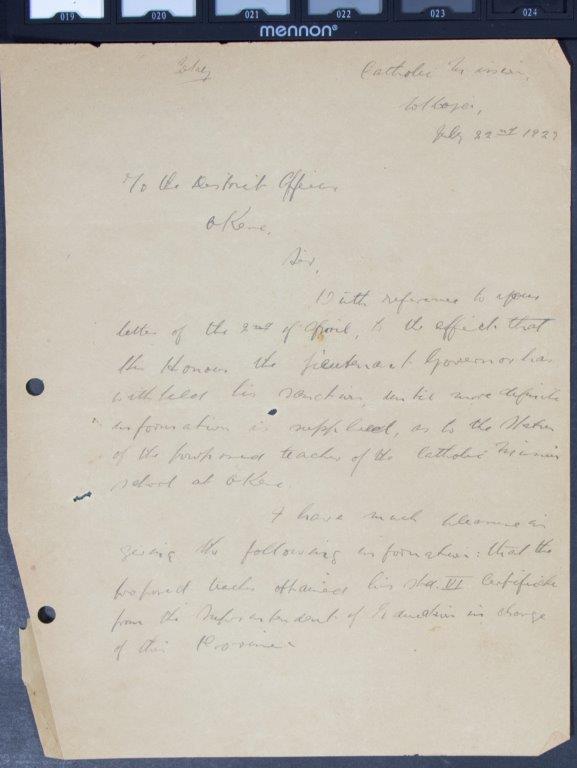 019 020 021 022 023 024
mennon®
Copy
Catholic Mission,
Lokoja,
July 22nd 1927
To the District Officer
Okene.
Sir,
With reference to your
letter of the 2nd of April, to the effect that
His Honour the Lieutenant Governor has
withheld his sanction, until more definite
information is supplied, as to the status
of the proposed teacher of the Catholic Mission
school at Okene.
I have much pleasure in
giving the following information: that the
proposed teacher obtained his std. VI Certificate
from the Superintendent of Education in charge
of this Province.